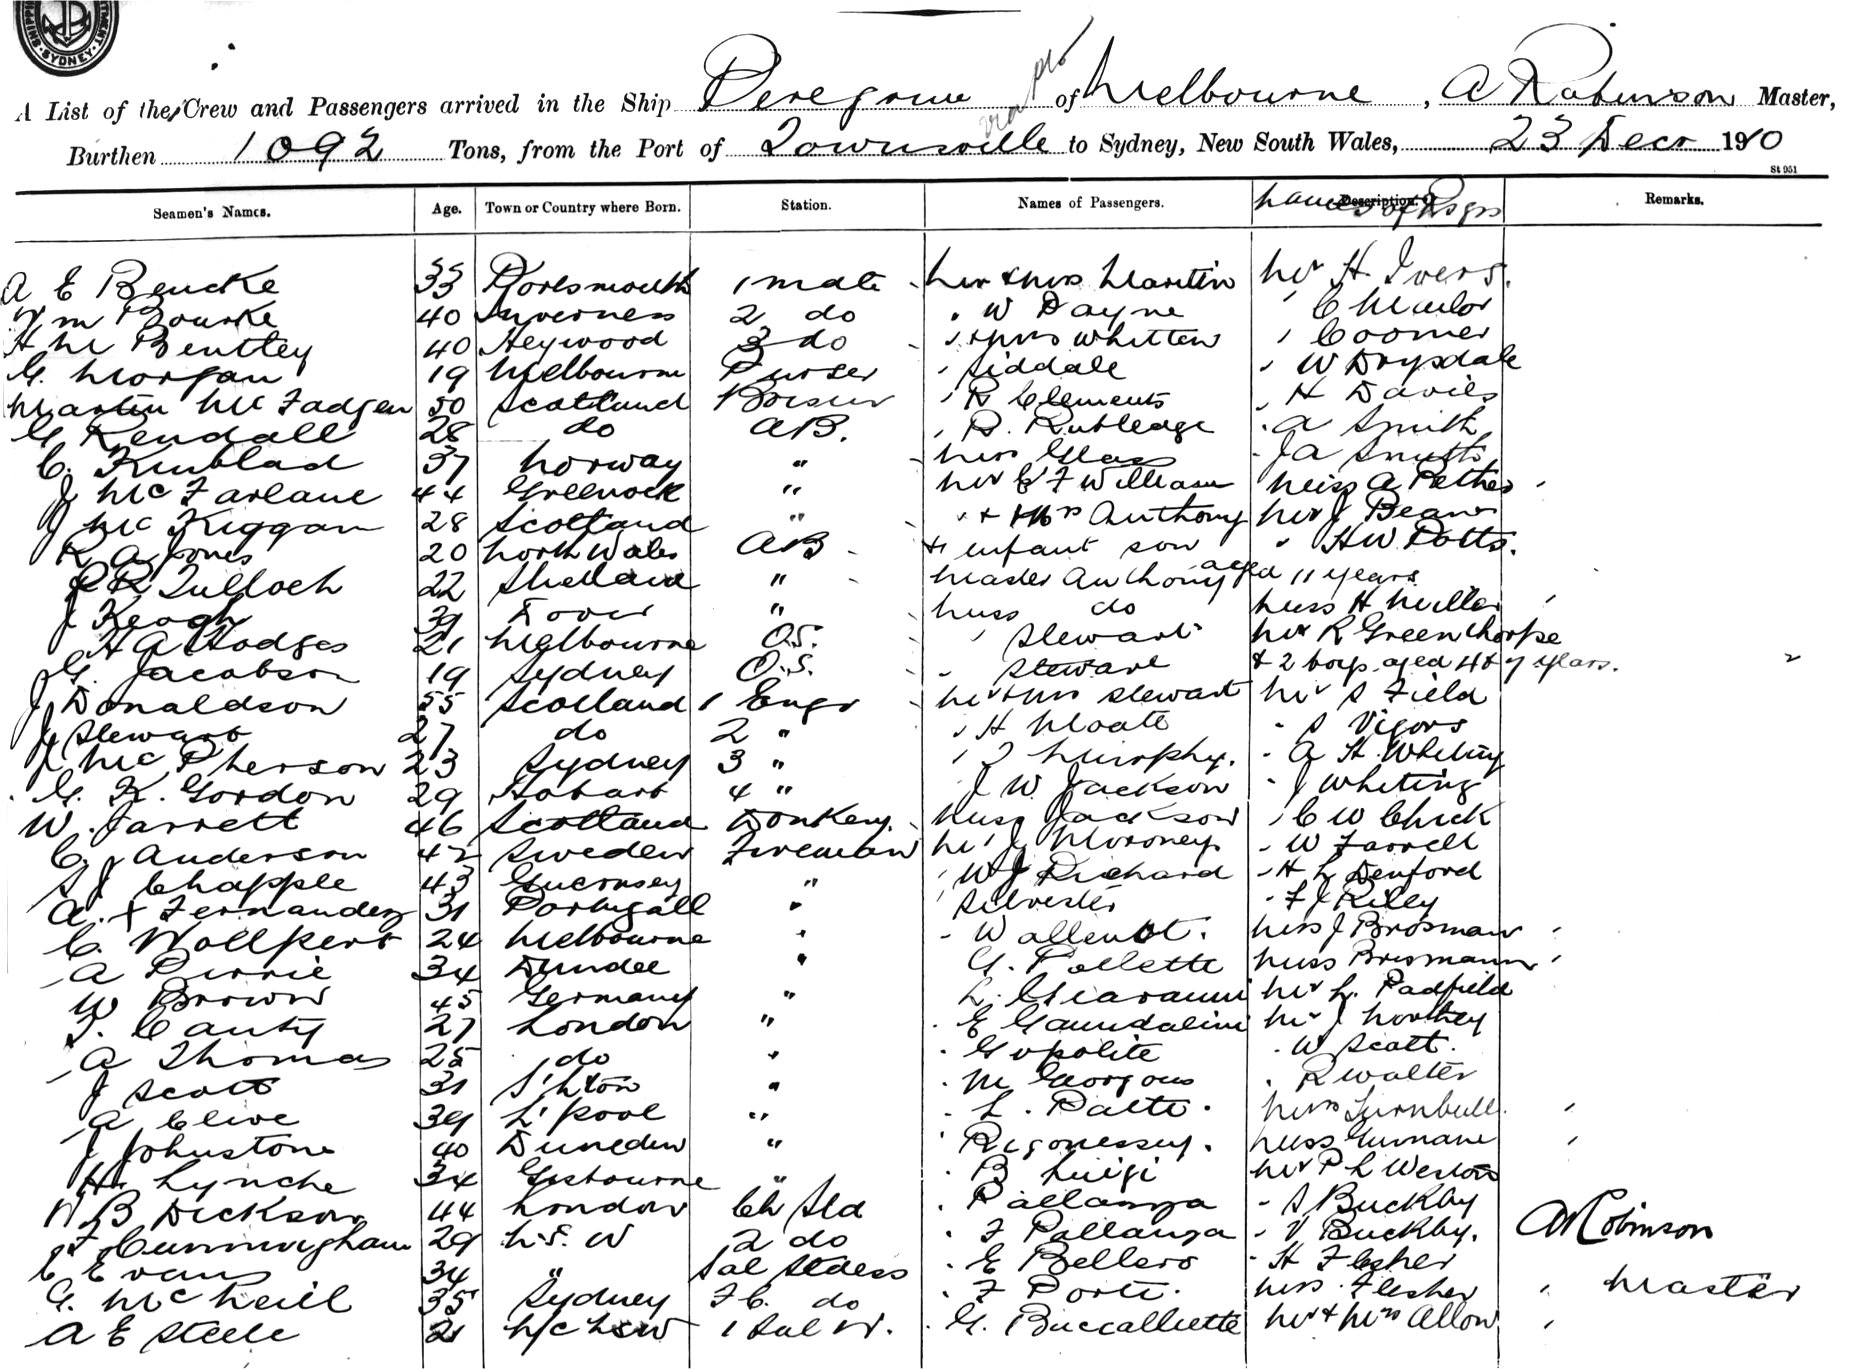 SYDNEY
A List of the Crew and Passengers arrived in the Ship Peregrine of Melbourne, A Robinson Master,
Burthen 1092 Tons, from the Port of Townsville to Sydney, New South Wales, 23 Decr 1910
St 951
Seamen's Names. Age. Town or Country where Born. Station. Names of Passengers. Names of Psgrs Remarks.
A E Beucke 33 Portsmouth 1 mate Mr & Mrs Martin Mr H. Ivers.
Wm Bourke 40 Inverness 2 do " W Dayne " C
H M Bentley 40 Heywood 3 do " & Mrs Whitten " Coomer
G. Morgan 19 Melbourne Purser " Siddale " W Drysdale
Martin McFadgen 50 Scotland " R Clements " H Davies
G Kendall 28 do AB. " R. Rutledge " A Smith
C. 37 Norway " Miss Glas " J A Smith
J McFarlane 44 Greenock " Mr C F William Miss A
J McKiggan 28 Scotland " " & Mrs Anthony Mr J
R A Jones 20 North Wales AB & infant son " H W Potts.
R Tulloch 22 " Master Anthony aged 11 years
J Keogh 39 Dover " Miss do Miss H Miller
H A Hodges 21 Melbourne O.S. " Stewart Mr R Greenthorpe
G. Jacobson 19 Sydney O.S. " Stewart & 2 boys aged 4 & 7 years.
J Donaldson 55 Scotland 1 Engr Mr & Mrs Stewart Mr S Field
J Stewart 27 do 2 " " H Moate " S Vigors
J McPherson 23 Sydney 3 " " J Murphy. " A H. Whiting
G. K. Gordon 29 Hobart 4 " " J W Jackson " J Whiting
W. Jarrett 46 Scotland Donkey. Miss Jackson " C W Chick
C J Anderson 42 Sweden Fireman Mr J Moroney " W Farrell
S J Chapple 43 Guernsey " " W J Richard " H L Denford
A. X Fernandez 31 Portugall " " Silvester " F J Riley
C. Wollpert 24 Melbourne " " Mrs J Brosman
A Pirrie 34 Dundee " G. Pollette Miss Brosmann
W Brown 45 Germany " L. Mr L. Padfield
T. Canty 27 London " " E Mr J Northey
A Thomas 25 do " " G " W Scott.
J Scott 31 S'hton " " M " R Walter
A Clive 39 L'pool " " L. Mrs Turnbull
J Johnstone 40 Dunedin " " Miss
H. Lynche 34 Gisbourne " " B Luigi Mr P L Weston
W B Dickson 44 London Ch Std " Pallanza " S Buckby
F Cunningham 29 N.S. W 2 do " F Pallanza " V Buckby. A Robinson
C Evans 34 " Sal Stdess " E Bellero " H Flesher
G. McNeill 35 Sydney F C. do " F Porte. Mrs. Flesher Master
A E Steele 21 1 Sal W. " G. Mr & Mrs Allow